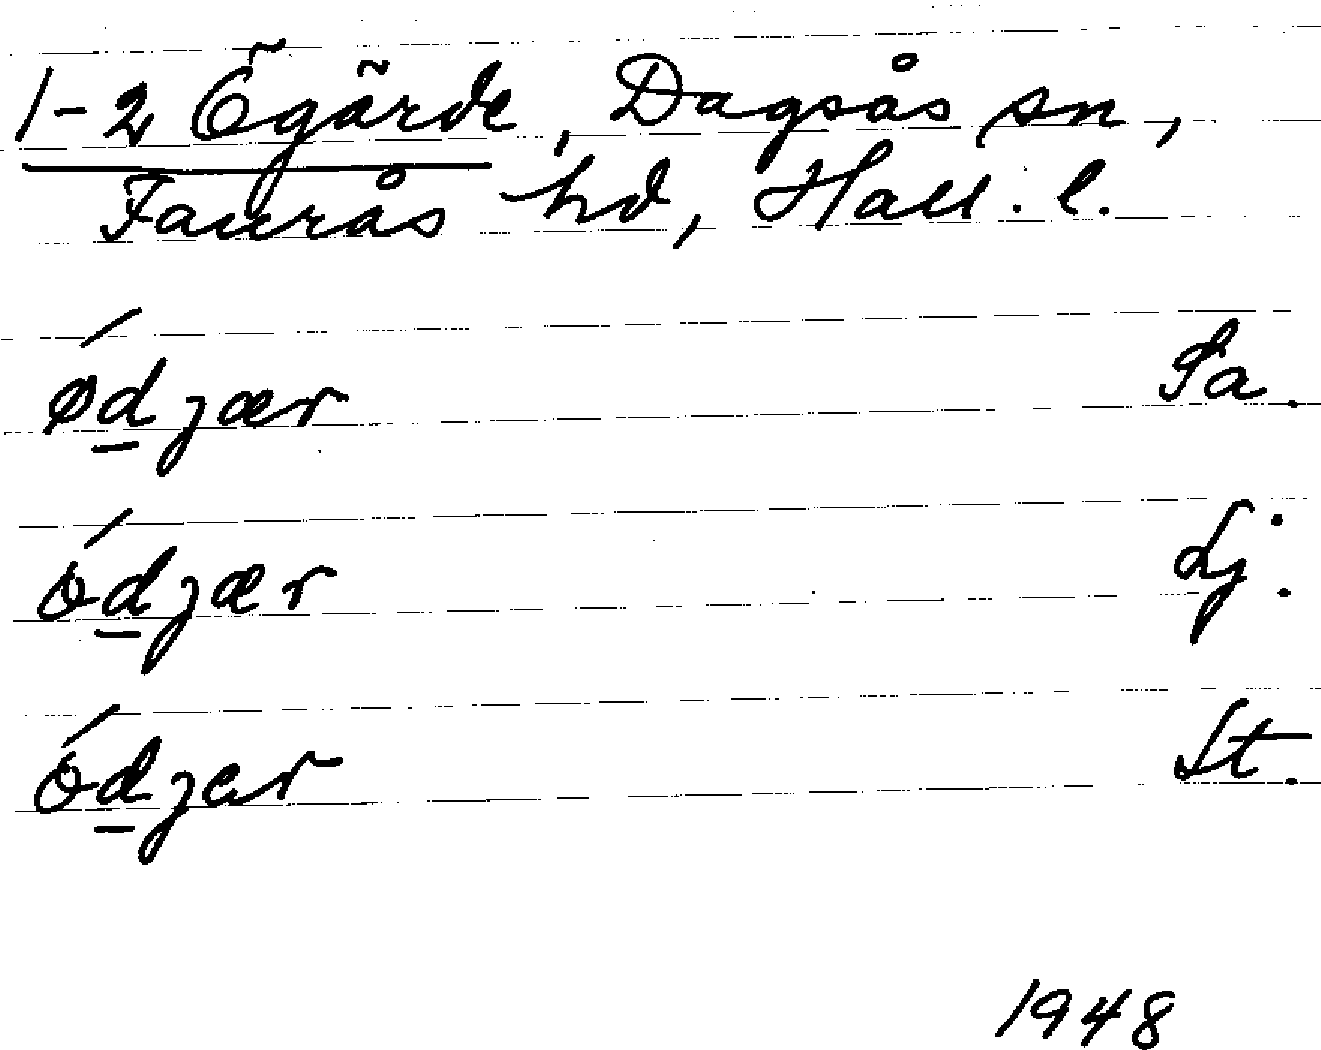 1-2 Ögärde, Dagsås sn,
Faurås hd, Hall. l.
ǿḏjær Sa.
ó̵ḏjær Lj.
ó̵ḏjer St.
1948